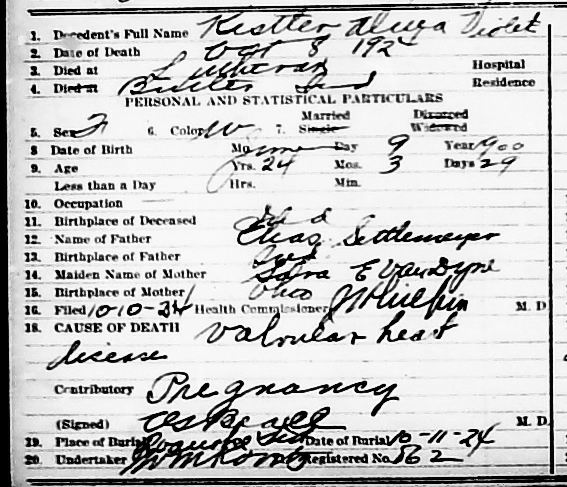 1. Decedent's Full Name Kistler Alura Violet
2. Date of Death Oct 8 1924
3. Died at Lutheran Hospital
4. Died at Butler Ind Residence
PERSONAL AND STATISTICAL PARTICULARS
Married Divorced
5. Sex F 6. Color W 7. Single Widowed
8 Date of Birth Mo June Day 9 Year 900
9. Age Yrs. 24 Mos. 3 Days 29
Less than a Day Hrs. Min.
10. Occupation
11. Birthplace of Deceased Ind
12. Name of Father Elias Settlemeyer
13. Birthplace of Father Ind
14. Maiden Name of Mother E VanDyne
15. Birthplace of Mother Ohio
16. Filed 10-10-24 Health Commissioner M. D
18. CAUSE OF DEATH Valvular heart
disease
Contributory Pregnancy
(Signed) M. D.
19. Place of Burial Ind Date of Burial 10-11-24
20. Undertaker Registered No. 862